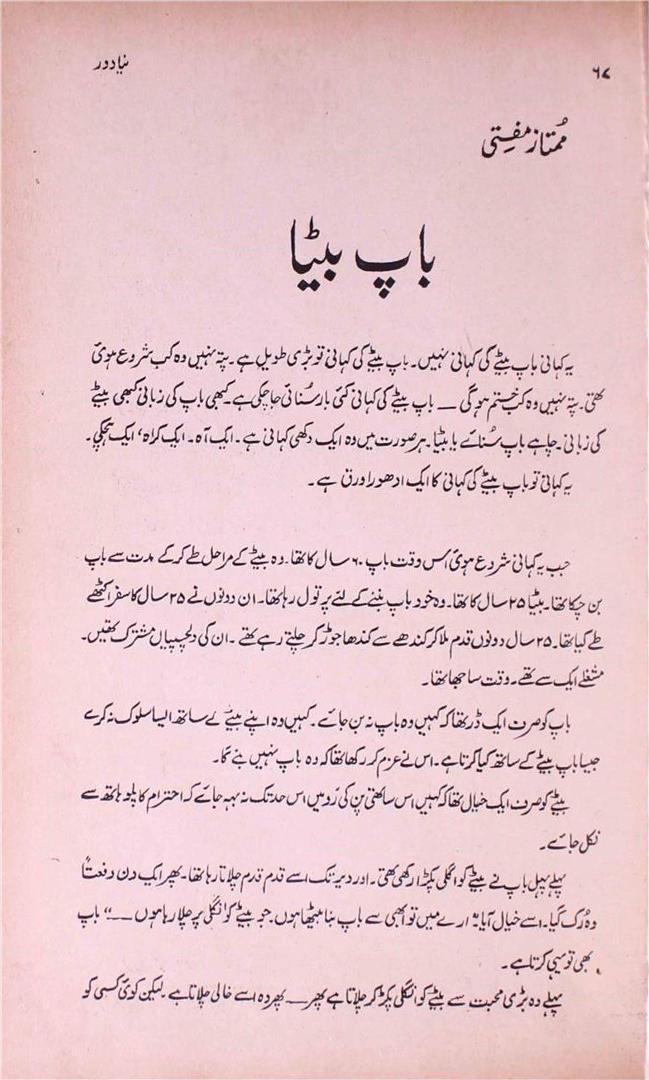 ۶۸
نیا دور
ممتاز مفتی
باپ بیٹا
یہ کہانی باپ بیٹے کی کہانی نہیں۔ باپ بیٹے کی کہانی تو بڑی طویل ہے۔ پتہ نہیں وہ کب شروع ہوئی
تھی۔ پتہ نہیں وہ کب ختم ہوگی — باپ بیٹے کی کہانی کئی بار سُنائی جا چکی ہے۔ کبھی باپ کی زبانی کبھی بیٹے
کی زبانی۔ چاہے باپ سُنائے یا بیٹا۔ ہر صورت میں وہ ایک دکھی کہانی ہے۔ ایک آہ۔ ایک کراہ، ایک ہچکی۔
یہ کہانی تو باپ بیٹے کی کہانی کا ایک ادھورا ورق ہے۔
جب یہ کہانی شروع ہوئی اس وقت باپ ۶۰ سال کا تھا۔ وہ بیٹے کے مراحل طے کر کے مدت سے باپ
بن چکا تھا۔ بیٹا ۲۵ سال کا تھا۔ وہ خود باپ بننے کے لئے پر تول رہا تھا۔ ان دونوں نے ۲۵ سال کا سفر اکٹھے
طے کیا تھا۔ ۲۵ سال دونوں قدم ملا کر کندھے سے کندھا جوڑ کر چلتے رہے تھے۔ ان کی دلچسپیاں مشترک تھیں۔
مشغلے ایک سے تھے۔ وقت ساجھا تھا۔
باپ کو صرف ایک ڈر تھا کہ کہیں وہ باپ نہ بن جائے۔ کہیں وہ اپنے بیٹے کے ساتھ ایسا سلوک نہ کرے
جیسا باپ بیٹے کے ساتھ کیا کرتا ہے۔ اس نے عزم کر رکھا تھا کہ وہ باپ نہیں بنے گا۔
بیٹے کو صرف ایک خیال تھا کہ کہیں اس ساتھی پن کی رَو میں اس حد تک نہ بہہ جائے کہ احترام کا پلو ہاتھ سے
نکل جائے۔
پہلے پہل باپ نے بیٹے کو انگلی پکڑا رکھی تھی۔ اور دیر تک اسے قدم قدم چلاتا رہا تھا۔ پھر ایک دن دفعتاً
وہ رُک گیا۔ اسے خیال آیا "ارے میں تو ابھی سے باپ بنا بیٹھا ہوں۔ جو بیٹے کو انگلی پر چلا رہا ہوں —" باپ
بھی تو یہی کرتا ہے۔
پہلے وہ بڑی محبت سے بیٹے کو انگلی پکڑ کر چلاتا ہے پھر — پھر وہ اسے خالی چلاتا ہے۔ لیکن کوئی کسی کو